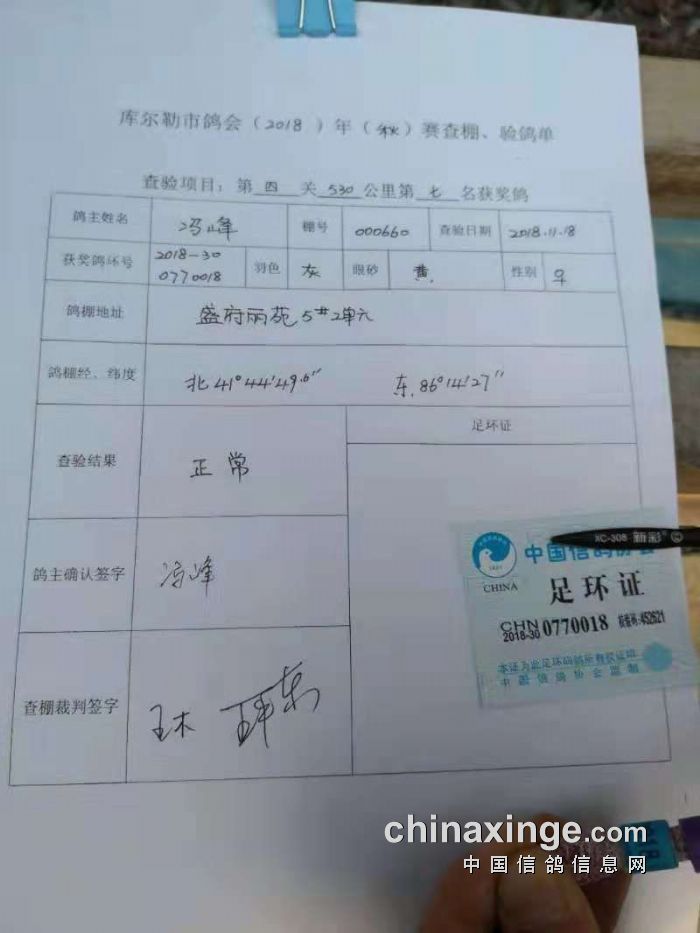 库尔勒市鸽会（2018）年（秋）赛查棚、验鸽单
查验项目：第四关530公里第七名获奖鸽
鸽主姓名 冯峰 棚号 000660 查验日期 2018.11.18
获奖鸽环号 2018-30 0770018 羽色 灰 眼砂 黄 性别 ♀
鸽棚地址 盛府丽苑5#2单元
鸽棚经、纬度 北41°44′49.6″ 东.86°14′27″
查验结果 正常
足环证
鸽主确认签字 冯峰
查棚裁判签字 王木
XC-308 新彩
中国信鸽协会
CHINA
足环证
CHN
2018-30 0770018 校验码:452621
本证为此足环信鸽所有权证明
中国信鸽协会监制
chinaxinge.com
中国信鸽信息网